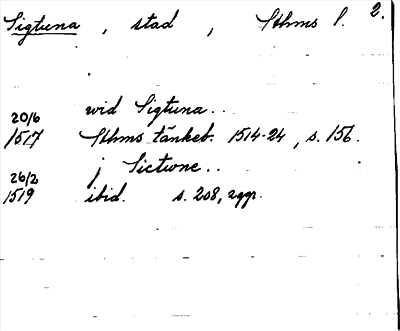 Sigtuna, stad, Sthms l. 2.
wid Sigtuna..
20/6 1517 Sthms tänkeb. 1514-24, s. 156.
j Sictwne..
26/2 1519 ibid. s. 208, 2ggr.